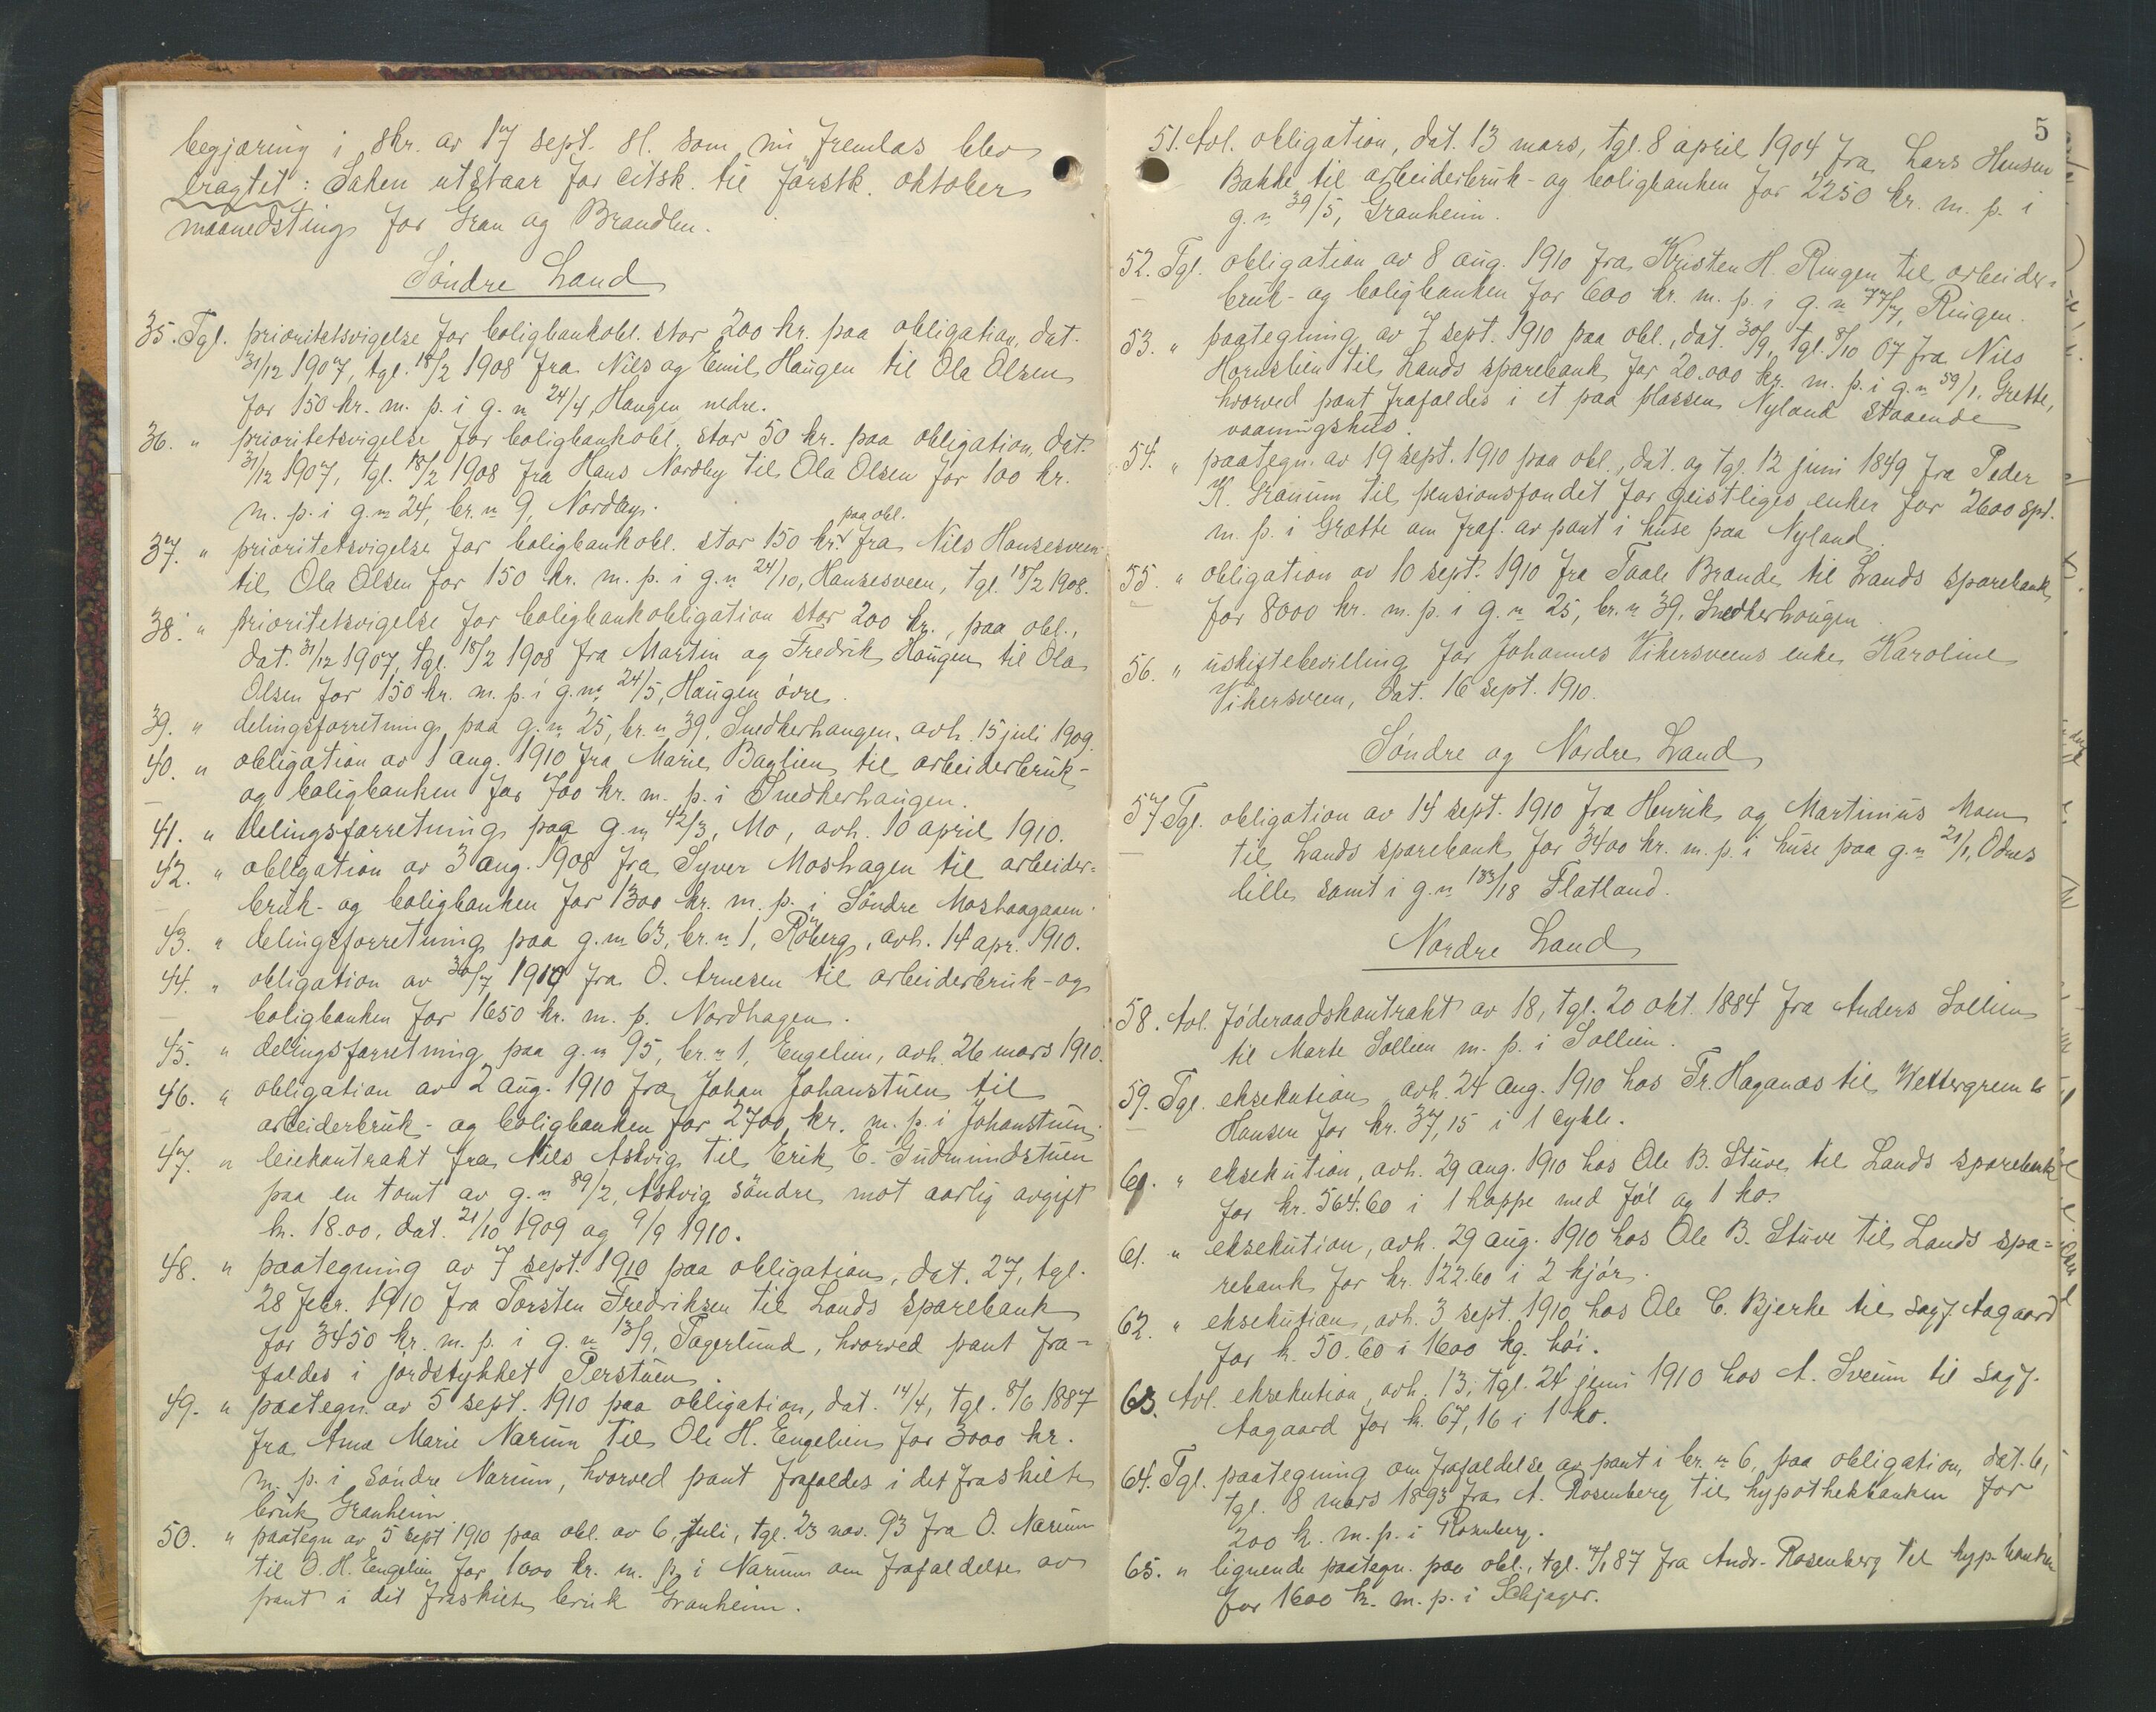 begjæring i skr. av 17 sept. sl. som nu fremlas blev
eragtet: Saken utstaar for citsk. til førstk. oktober
maanedsting for Gran og Brandbu.
Søndre Land
35. Tgl. prioritetsvigelse for boligbankobl. stor 200 kr. paa obligation, dat.
31/12 1907, tgl. 18/2 1908 fra Nils og Emil Haugen til Ola Olsen
for 150 kr. m. p. i g. n 24/4, Haugen nedre.
36. " prioritetsvigelse for boligbankobl. stor 50 kr. paa obligation, dat.
31/12 1907, tgl. 18/2 1908 fra Hans Nordby til Ola Olsen for 100 kr.
m. p. i g. n 24, br. n 9, Nordby.
37. " prioritetsvigelse for boligbankobl. stor 150 kr. paa obl. fra Nils Hansesveen
til Ola Olsen for 150 kr. m. p. i g. n 24/10, Hansesveen, tgl. 18/2 1908.
38. " prioritetsvigelse for boligbankobligation stor 200 kr., paa obl.,
dat. 31/12 1907, tgl. 18/2 1908 fra Martin og Fredrik Haugen til Ola
Olsen for 150 kr. m. p. i g. n 24/5, Haugen øvre.
39. " delingsforretning paa g. n 25, br. n 39, Snedkerhaugen, avh. 15 juli 1909.
40. " obligation av 1 aug. 1910 fra Marie Baglien til arbeiderbruk-
og boligbanken for 700 kr. m. p. i Snedkerhaugen.
41. " delingsforretning paa g. n 42/3, Mo, avh. 10 april 1910.
42. " obligation av 3 aug. 1908 fra Syver Moshagen til arbeider=
bruk- og boligbanken for 1300 kr. m. p. i Søndre Moshaagaaen.
43. " delingsforretning paa g. n 63, br. n 1, Røberg, avh. 14 apr. 1910.
44. " obligation av 30/7 1910 fra O. Arnesen til arbeiderbruk- og
boligbanken for 1650 kr. m. p. Nordhagen.
45. " delingsforretning paa g. n 95, br. n 1, Engelien, avh. 26 mars 1910.
46. " obligation av 2 aug. 1910 fra Johan Johanstuen til
arbeiderbruk- og boligbanken for 2700 kr. m. p. i Johanstuen.
47. " leiekontrakt fra Nils Askvig til Erik E. Gudmundstuen
paa en tomt av g. n 89/2, Askvig søndre mot aarlig avgift
kr. 18.00, dat. 21/10 1909 og 9/9 1910.
48. " paategning av 7 sept. 1910 paa obligation, dat. 27, tgl.
28 febr. 1910 fra Torsten Fredriksen til Lands sparebank
for 3450 kr. m. p. i g. n 13/9, Fagerlund, hvorved pant fra-
faldes i jordstykket Perstuen.
49. " paategn. av 5 sept. 1910 paa obligation, dat. 14/4, tgl. 8/6 1887
fra Ama Marie Narum til Ole H. Engelien for 3000 kr.
m. p. i søndre Narum, hvorved pant frafaldes i det fraskilte
bruk Granheim
50. " paategn av 5 sept 1910 paa obl. av 6, juli, tgl. 23 nov. 93 fra O. Narum
til O. H. Engelien for 1000 kr. m. p. i Narum om frafaldelse av
pant i det fraskilte bruk Granheim.
5
51. Avl. obligation, dat. 13 mars, tgl. 8 april 1904 fra Lars Hansen
Bakke til arbeiderbruk- og boligbanken for 2250 kr. m. p. i
g. n 39/5, Granheim.
52. Tgl. obligation av 8 aug. 1910 fra Kristen H. Ringen til arbeider=
bruk- og boligbanken for 600 kr. m. p. i g. n 77/7, Ringen.
53. " paategning av 7 sept. 1910 paa obl., dat. 30/9, tgl. 8/10 07 fra Nils
Hornslien til Lands sparebank for 20.000 kr. m. p. i g. n 59/1, Grette,
hvorved pant frafaldes i et paa plassen Nyland staaende
vaaningshus.
54. " paategn. av 19 sept. 1910 paa obl., dat. og tgl. 12 juni 1849 fra Peder
K. Granum til pensionsfondet for geistliges enker for 2600 spd.
m. p. i Grætte om fraf. av pant i huse paa Nyland.
55. " obligation av 10 sept. 1910 fra Taale Brande til Lands sparebank
for 8000 kr. m. p. i g. n 25, br. n 39, Snedkerhaugen.
56. " uskiftebevilling for Johannes Vikersveens enke Karoline
Vikersveen, dat. 16 sept. 1910.
Søndre og Nordre Land
57 Tgl. obligation av 14 sept. 1910 fra Henrik og Martinius Moen
til Lands sparebank for 3400 kr. m. p. i huse paa g. n 21/1, Odnes
lille samt i g. n 133/18 Flatland.
Nordre Land
58. Avl. føderaadskontrakt av 18, tgl. 20 okt. 1884 fra Anders Sollien
til Marte Sollien m. p. i Sollien.
59. Tgl. eksekution avh. 24 aug. 1910 hos Fr. Haganæs til Wettergreen &
Hansen for kr. 37,15 i 1 cykle.
60. " eksekution, avh. 29 aug. 1910 hos Ole B. Stuve til Lands sparebank
for kr. 564.60 i 1 hoppe med føl og 1 ko.
61. " eksekution, avh. 29 aug. 1910 hos Ole B. Stuve til Lands spa=
rebank for kr. 122.60 i 2 kjør.
62. " eksekution, avh. 3 sept. 1910 hos Ole C. Bjerke til sagf. Aagaard
for k. 50.60 i 1600 kg. høi.
63. Avl. eksekution avh. 13, tgl. 24 juni 1910 hos A. Sveum til sagf.
Aagaard for k. 67,16 i 1 ko.
64. Tgl. paategning om frafaldelse av pant i br. n 6, paa obligation, dat. 6,
tgl. 8 mars 1893 fra A. Rosenberg til hypothekbanken for
200 k. m. p. i Rosenberg.
65. " lignende paategn. paa obl., tgl. 7/1 87 fra Andr. Rosenberg til hyp. banken
for 1600 k. m. p. i Sebjager.